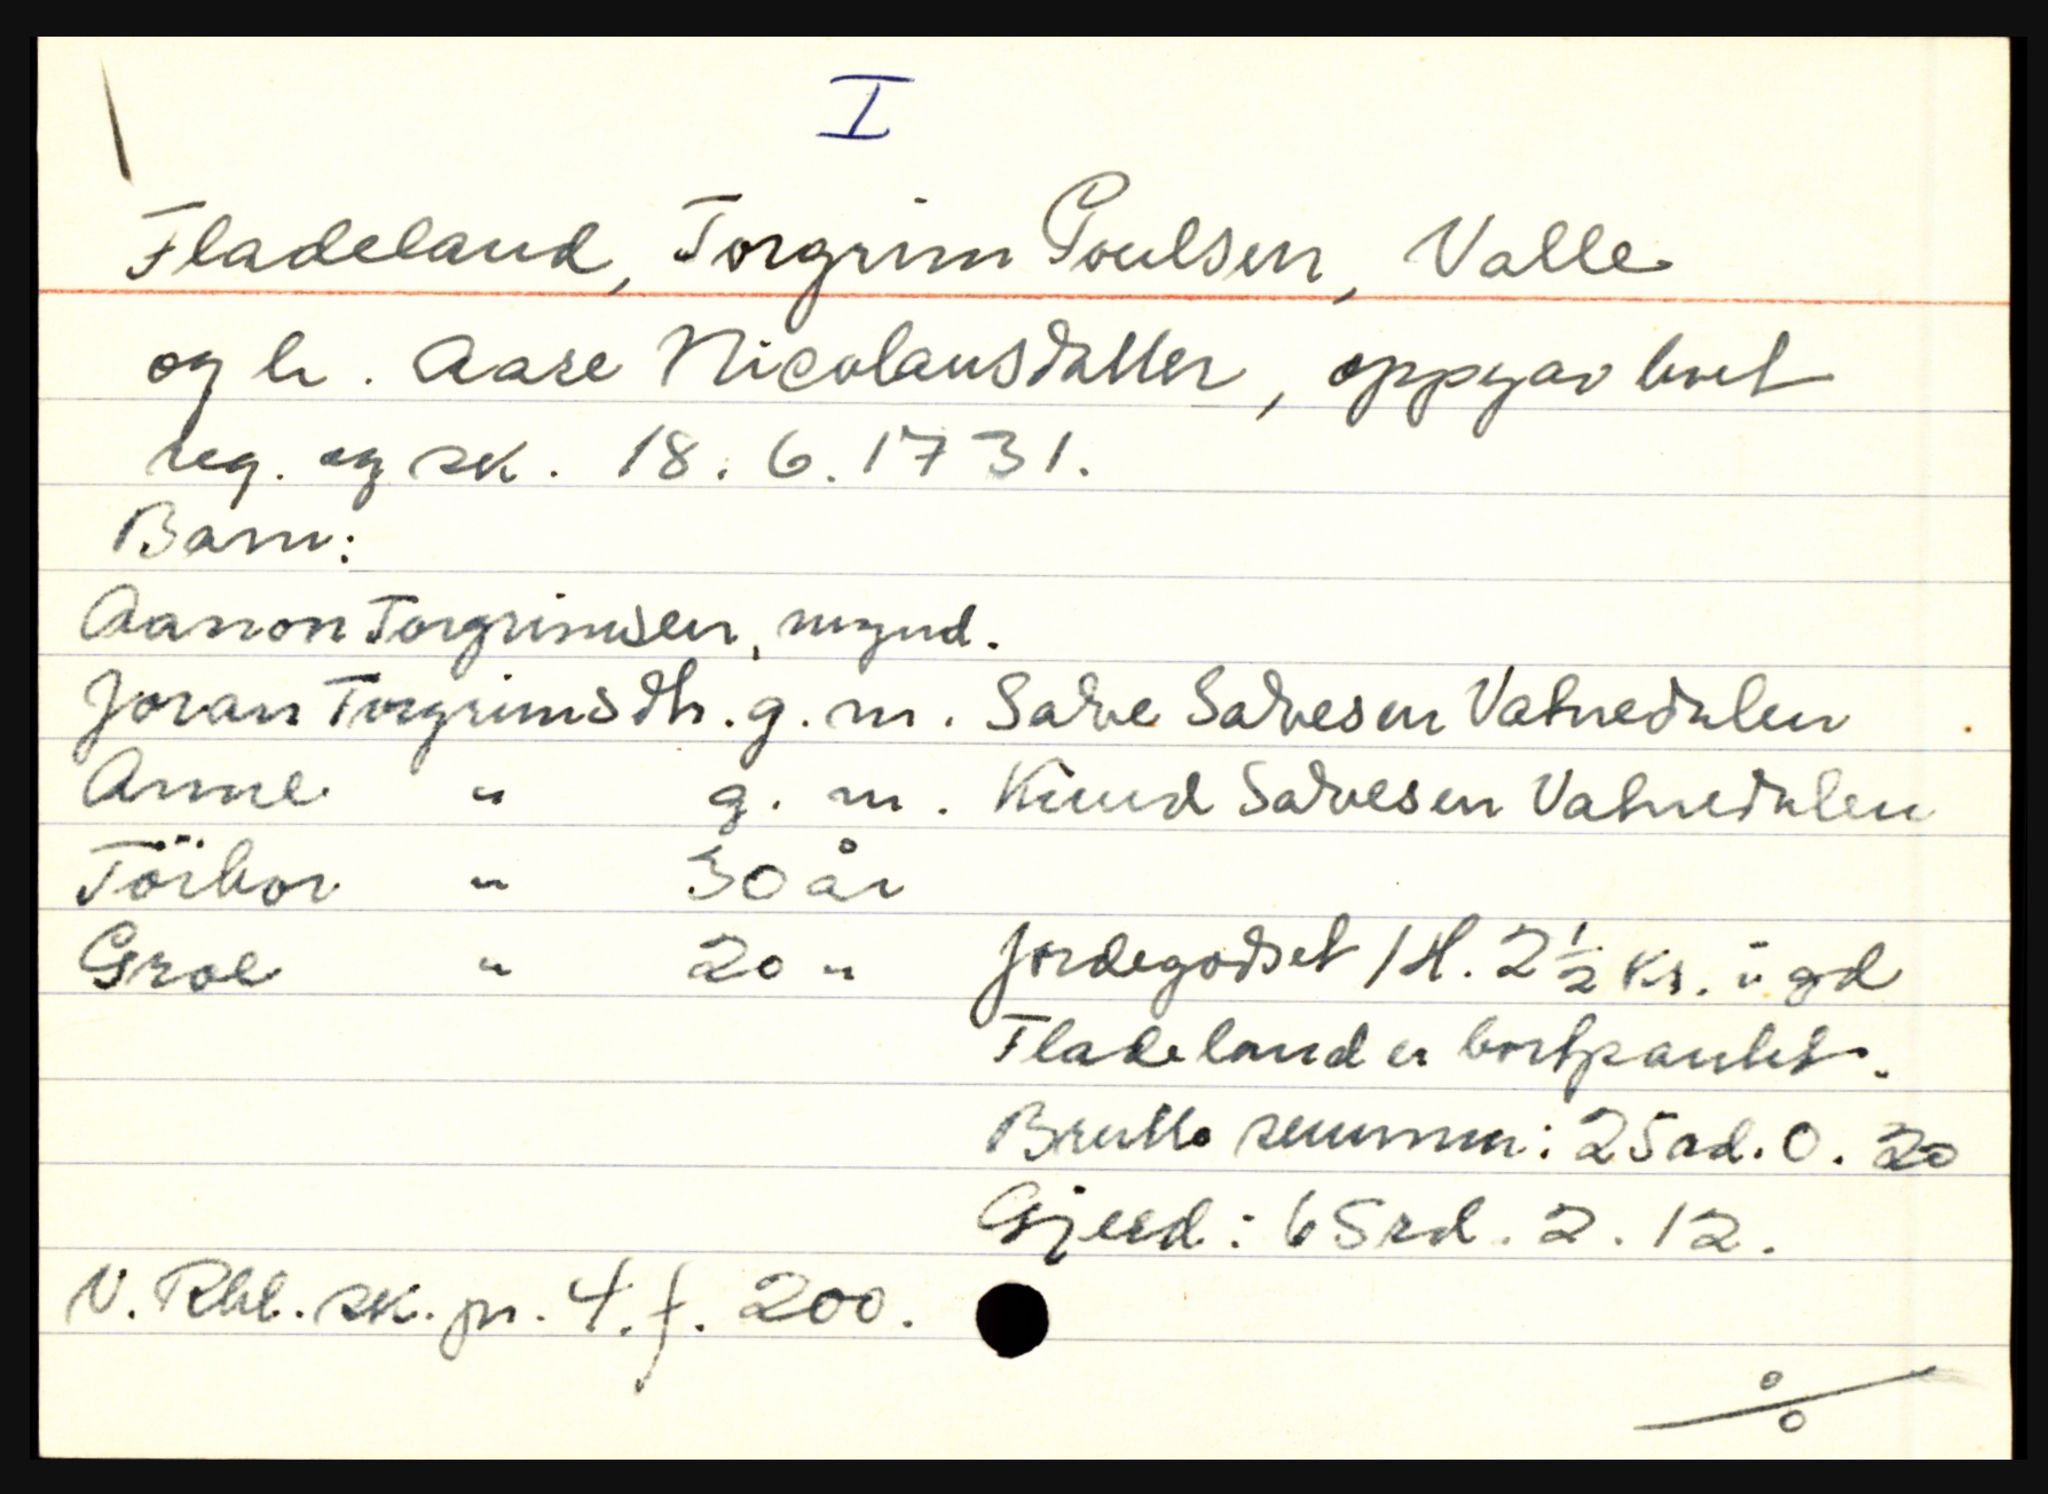 I
Fladeland, Torgrim Poulsen, Valle
og h. Aase Nicolausdatter, oppgav boet
reg. og sk. 18.6.1731.
Barn:
Aanon Torgrimsen, mynd.
Joran Torgrimsdtr. g. m. Salve Salvesen Vatnedalen
Anne " g. m. Knud Salvesen Vatnedalen
Törbor " 30 år
Groe " 20 " Jordegodset 1 H. 2 1/2 Ks. i gd
Fladeland er bortpantet.
Brutto summen: 25 rd. 0. 20
Gjeld: 65 rd. 2. 12.
V. Rbl. sk. pr. 4. f. 200.
%